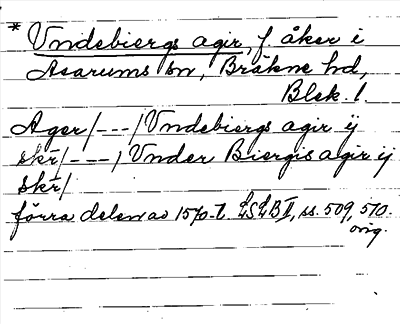 * Vndebiergs agir, f. åker i
Asarums sn, Bräkne hd,
Blek. l.
Ager/---/Vndebiergs agir ij
skr̄/---/Vnder Biergis agir ij
skr̄/
förra delen av 1570-t. LSLB II, ss. 509, 510.
orig.